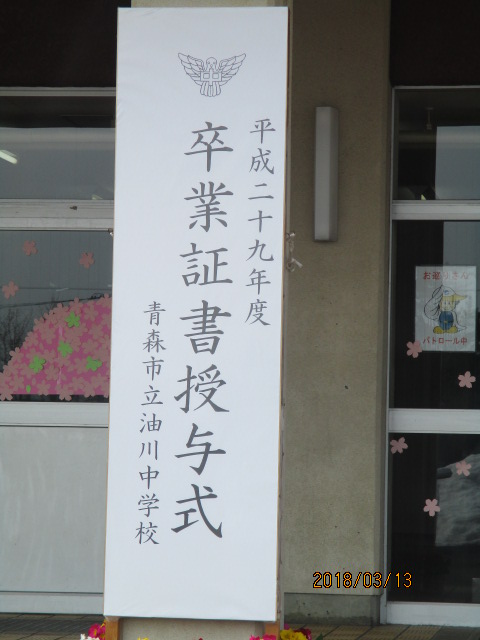 中
平成二十九年度
卒業証書授与式
青森市立油川中学校
お巡りさん
パトロール中
2018/03/13